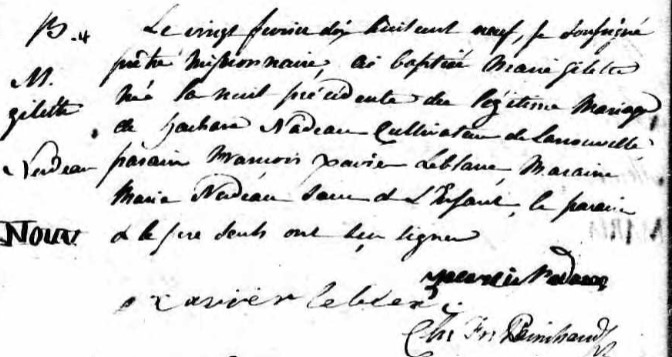 B. 4
M.
gilette
Nadeau
Nouv
Le vingt fevrier dix huit cent neuf, je soussigné
prêtre missionnaire, ai baptisé Marie gilette
née la nuit précédente du légitime Mariage
de Nadeau Cultivateur de
parain françois xavier Leblanc, Maraine
Marie Nadeau Sœur de L'Enfant, le parain
& le pere seuls ont signer
Nadeau
xavier leblan
Painchaud